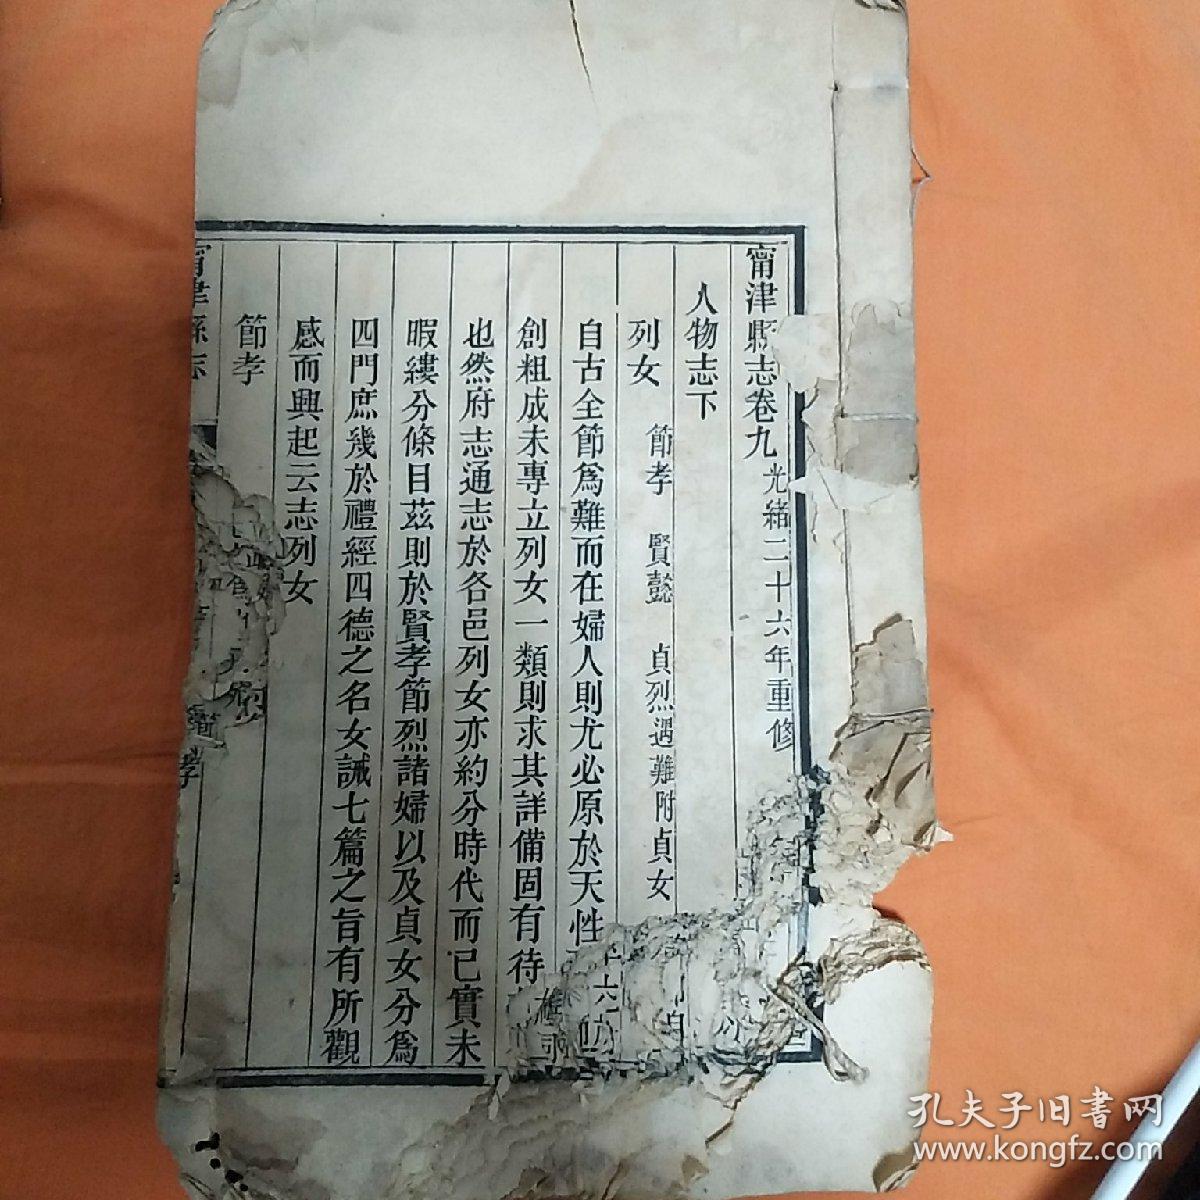 甯津縣志卷九 光緒二十六年重修
人物志下
列女 節孝 賢懿 貞烈遇難附貞女
自古全節爲難而在婦人則尤必原於天性
創粗成未專立列女一類則求其詳備固有待
也然府志通志於各邑列女亦約分時代而已實未
暇縷分條目茲則於賢孝節烈諸婦以及貞女分爲
四門庶幾於禮經四德之名女誡七篇之旨有所觀
感而興起云志列女
節孝
甯津縣志
孝
孔夫子旧书网
www.kongfz.com